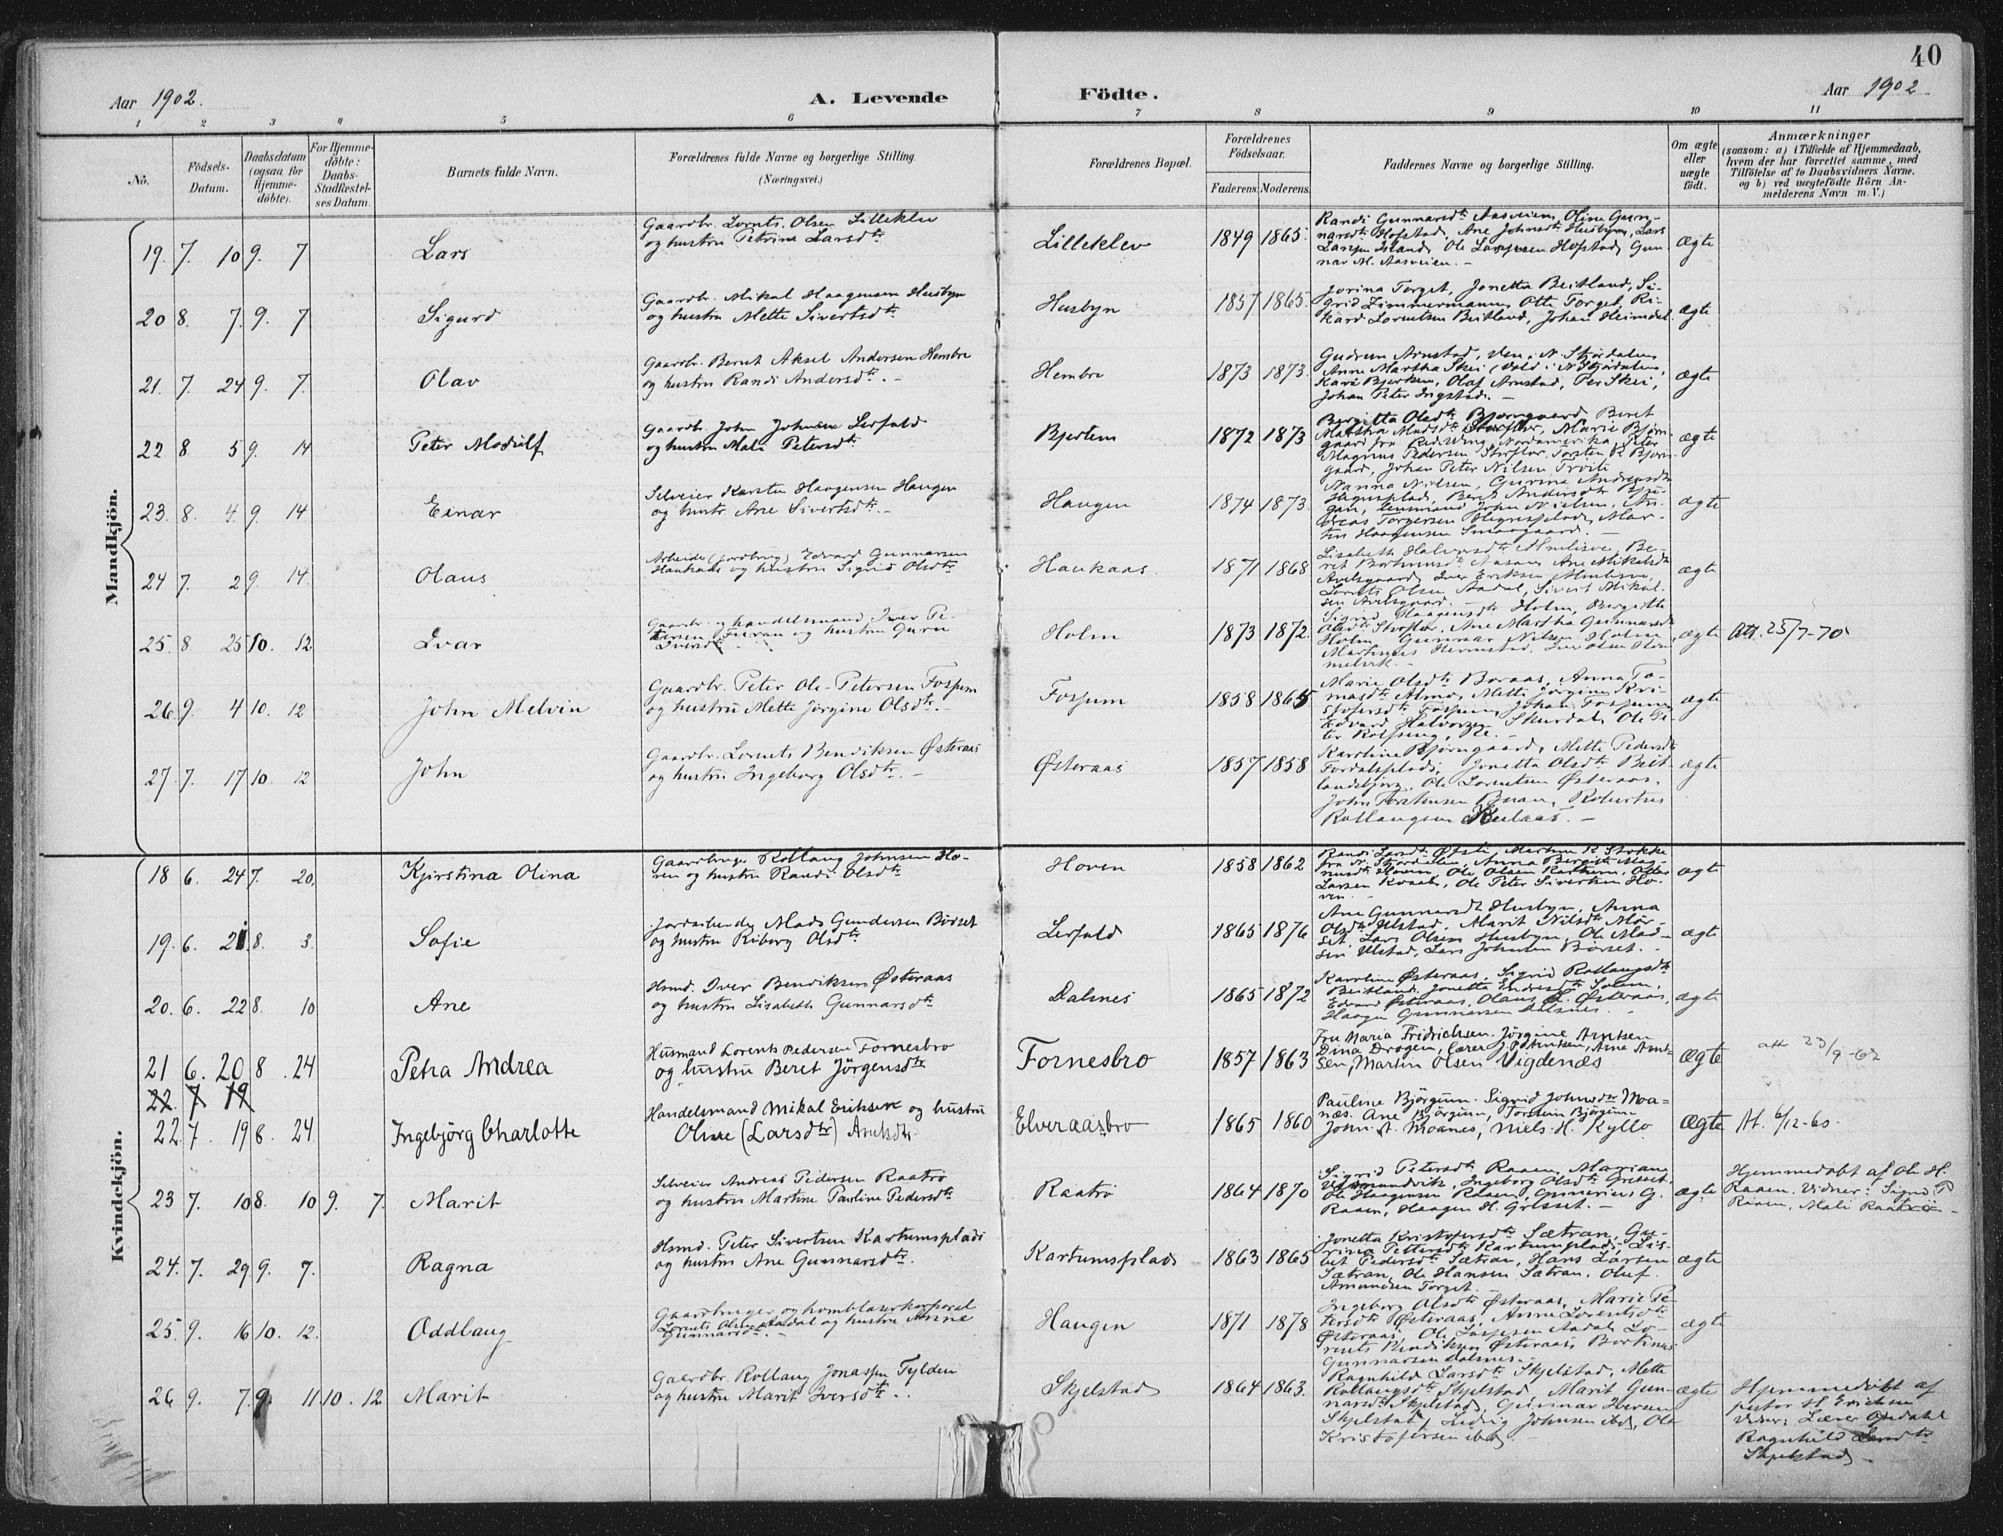 40
Aar 1902.
A. Levende
Födte.
Aar 1902.
1 2 3 4 5 6 7 8 9 10 11
No.
Födsels-
Datum.
Daabsdatum
(ogsaa for
Hjemme-
döbte).
For Hjemme-
döbte:
Daabs-
Stadfæstel-
ses Datum.
Barnets fulde Navn.
Forældrenes fulde Navne og borgerlige Stilling.
(Næringsvei.)
Forældrenes Bopæl.
Forældrenes
Födselsaar.
Faderens. Moderens.
Faddernes Navne og borgerlige Stilling.
Om ægte
eller
uægte
födt.
Anmærkninger
(saasom: a) i Tilfælde af Hjemmedaab,
hvem der har forrettet samme, med
Tilföielse af to Daabsvidners Navne.
og b) ved uægtefödte Börn An-
melderens Navn m. V.)
Mandkjön.
19. 7. 10 9. 7
Lars
Gaardbr. Lornts Olsen Lilleklev
og hustru Petrina Larsdtr
Lilleklev
1849 1865.
Randi Gunnarsdtr Aasveien, Oline Gun-
narsdtr Hofstad, Ane Johnsdtr Husbyn, Lars
Larssen Hofstad, Gun-
nar M. Aasveien. -
ægte
20 8. 7. 9. 7
Sigurd
Gaardbr. Mikal Haagensen Husbyn
og hustru Mette Sivertsdtr
Husbyn
1857 1865.
Jorina Torget, Jonetta Beitland, Si-
grid Zimmermann, Otte Torget, Ri-
kard Lorentsen Beitland, Johan Heimdal
ægte
21. 7. 24 9. 7.
Olav
Gaardbr. Bernt Aksel Andersen Hembre
og hustru Randi Andersdtr. -
Hembre
1873 1873.
Gudrun Arnstad, N. Stjørdalen
Anne Martha Skei
Kari Bjerken, Olaf Arnstad, Per Skei,
Johan Peter Ingstad. -
ægte
22 8 5 9. 14
Peter Modulf
Gaardb. John Johnsen Leifald
og hustru Mali Petersdtr
Bjertem
1872 1873
Bergitta Olsdtr Bjørngaard, Beret
Martha Madsdtr Storflor, Marie Bjørn-
gaard fra Red Wing, Nordamerika, Peter
Magnus Pedersen Storflor, Torsten R. Bjørn-
gaard, Johan Peter Nilsen Troite
ægte
23. 8. 4. 9. 14
Einar
Selveier Karsten Haagensen Haugen
og hustr Ane Sivertsdtr. -
Haugen
1874 1873.
Nanna Nielsen, Gurina Andreasdtr
Beret Andersdtr
John Nielsen, An-
dreas Torgersen
tin Haagensen
ægte
24 7. 2 9. 14.
Olaus
Arbeider (jordbrug) Edvard Gunnarsen
Haukaas og hustru Sigrid Olsdtr
Haukaas.
1871 1868
Lisabeth Halvorsdtr Be-
ret Ane Mikalsdtr
Avelsgaard, Iver Eriksen
Lornts Olsen Aadal, Sivert Mikal-
sen Avelsgaard.
ægte
25. 8 25 10. 12
Ivar
Gaardbr. og handelsmand Iver Pe-
tersen og hustru Guru
Iversdtr
Holm
1873 1872.
Haagensdtr Holm, Bergitte
Olsdtr Storflor, Ane Martha Gunnarsdtr
Holm, Gunnar Nilsen Holm
Martinus Iver Olsen
ægte
Att. 25/7-70
26. 9. 4 10. 12
John Melvin
Gaardbr. Peter Ole Petersen Fossum
og hustru Mette Jørgine Olsdtr. -
Fossum
1858 1865
Marie Olsdtr Boraas, Anna To-
masdtr Mette Jørgine Kri-
stofersdtr Fossum, Johan Fossum
Edvard Halvorsen Skurdal, Ole Pe-
ter
ægte
27. 7. 17 10. 12
John
Gaardbr. Lornts Bendiksen Østeraas
og hustru Ingeborg Olsdtr. -
Østeraas
1857 1858
Karoline Bjørngaard, Mette Pedersdtr
Fordalsplads, Jonetta Olsdtr Beit-
landsbjørg, Ole Lorentsen Østeraas,
John Torstensen Buan, Robertus
Rollaugsen -
ægte
Kvindekjön.
18 6. 24 7. 20.
Kjirstina Olina
Gaardbruger Rollaug Johnsen Ho-
ven og hustru Randi Olsdtr
Hoven
1858 1862
Randi Larsdtr Øfsti, Martin K. Stokke
fra N. Stjørdalen, Anna Bergitte Mag-
nusdtr Hoven, Ole Olsen
Larsen Kvaal, Ole Peter Sivertsen Ho-
ven. -
ægte
19. 6. 21 8. 3.
Sofie
Jordarbeider Mads Gundersen Börset
og hustru Riborg Olsdtr
Leifald
1865 1876
Ane Gunnarsdtr Husbyn, Anna
Olsdtr Ulstad, Marit Nilsdtr Mör-
set, Lars Olsen Husbyn, Ole Mad-
sen Ulstad, Lars Johnsen Börset. -
ægte
20. 6. 22 8. 10
Ane
Hsmd. Iver Bendiksen Østeraas
og hustru Lisabeth Gunnarsdtr
Dalsnes
1865 1872
Karoline Østeraas, Sigrid Rollaugsdtr
Beitland, Jonetta Endresdtr Solem,
Edvard Østeraas, Olaus Østeraas,
Haagen Gunnarsen Dalsnes. -
ægte
21 6. 20 8. 24
Petra Andrea
Husmand Lorents Pedersen Fornesbro
og hustru Beret Jörgensdtr
Fornesbro
1857 1863
Fru Maria Fridrichsen. Jörgine Arntsen
Dina Drogen, Lærer J. Arntsen, Arne Arnt-
sen, Martin Olsen Vigdenæs
ægte
att 23/9-62
22. 7 19
22. 7. 19 8. 24.
Ingebjörg Charlotte
Handelsmand Mikal Eriksen og hustru
Oline (Larsdtr) Arntsdtr
Elveraasbro
1865 1860
Pauline Björgum. Sigrid Johnsdtr Moa-
næs. Ane Björgum, Torstein Björgum
John A. Moanes, Niels H. Kyllo
ægte
At. 6/12-60.
23 7. 10 8. 10 9. 7.
Marit
Selveier Andreas Pedersen Raatrö
og hustru Martine Pauline Pedersdtr
Raatrö
1864 1870
Sigrid Petersdtr Raaen, Mariane
Ingeborg Olsdtr Gresset,
Ole Haagensen Raaen, G.
Raaen, Haagen H. Gresset. -
ægte
Hjemmedøbt af Ole H.
Raaen. Vidner: Sigrid P
Raaen, Mali Raatrö -
24. 7. 29 9. 7.
Ragna
Hsmd. Peter Sivertsen Kartumsplads
og hustru Ane Gunnarsdtr.
Kartumsplads
1863 1865
Jonetta Kristofersdtr Sætran, Gu-
rina Pettersdtr Kartumplads, Lis-
bet Pedersdtr Sætran, Hans Larsen
Sætran, Ole Hansen Sætran, Oluf
Amundsen Torget.
ægte
25. 9. 16 10. 12.
Oddlaug
Gaardbruger og hornblæserkorporal
Lornts Olsen Aadal og hustru Anne
Gunnarsdtr. -
Haugen
1871 1878
Ingeborg Olsdtr Østeraas, Marie Pe-
tersdtr Østeraas, Anne Lorentsdtr
Østeraas, Ole Aadal, Lo-
rents Bendiksen Østeraas, Bortinus
Gunnarsen Dalsnes. -
ægte
26 9. 7. 9. 11 10. 12
Marit
Gaardbr. Rollaug Jonassen Fylden
og hustru Marit Iversdtr. .
Skjelstad
1864 1863.
Ragnhild Larsdtr Skjelstad, Mette
Rollaugsdtr Skjelstad, Marit Gun-
narsdtr Skjelstad, Gunnar Iversen
Skjelstad, Ludvig Johnsen ibid, Ole
Kristofersen ibid. -
ægte
Hjemmedøbt af
pastor H. Erichsen
Vidner: Lærer Opdahl
Ragnhild Larsdtr
Skjelstad. -